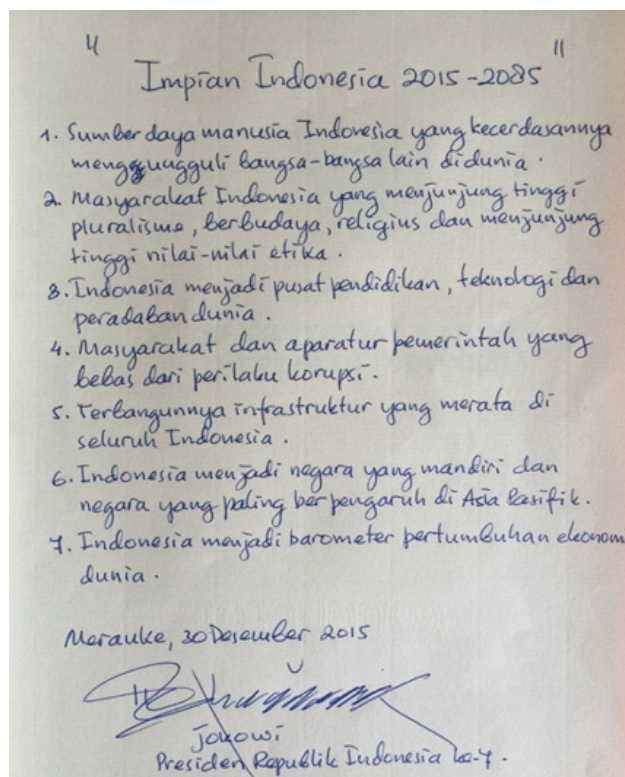 " Impian Indonesia 2015-2085 "
1. Sumber daya manusia Indonesia yang kecerdasannya
mengungguli bangsa-bangsa lain didunia.
2. Masyarakat Indonesia yang menjunjung tinggi
pluralisme, berbudaya, religius dan menjunjung
tinggi nilai-nilai etika.
3. Indonesia menjadi pusat pendidikan, teknologi dan
peradaban dunia.
4. Masyarakat dan aparatur pemerintah yang
bebas dari perilaku korupsi.
5. Terbangunnya infrastruktur yang merata di
seluruh Indonesia.
6. Indonesia menjadi negara yang mandiri dan
negara yang paling berpengaruh di Asia Pasifik.
7. Indonesia menjadi barometer pertumbuhan ekonom
dunia.
Merauke, 30 Desember 2015
jokowi
Presiden Republik Indonesia ke-7.